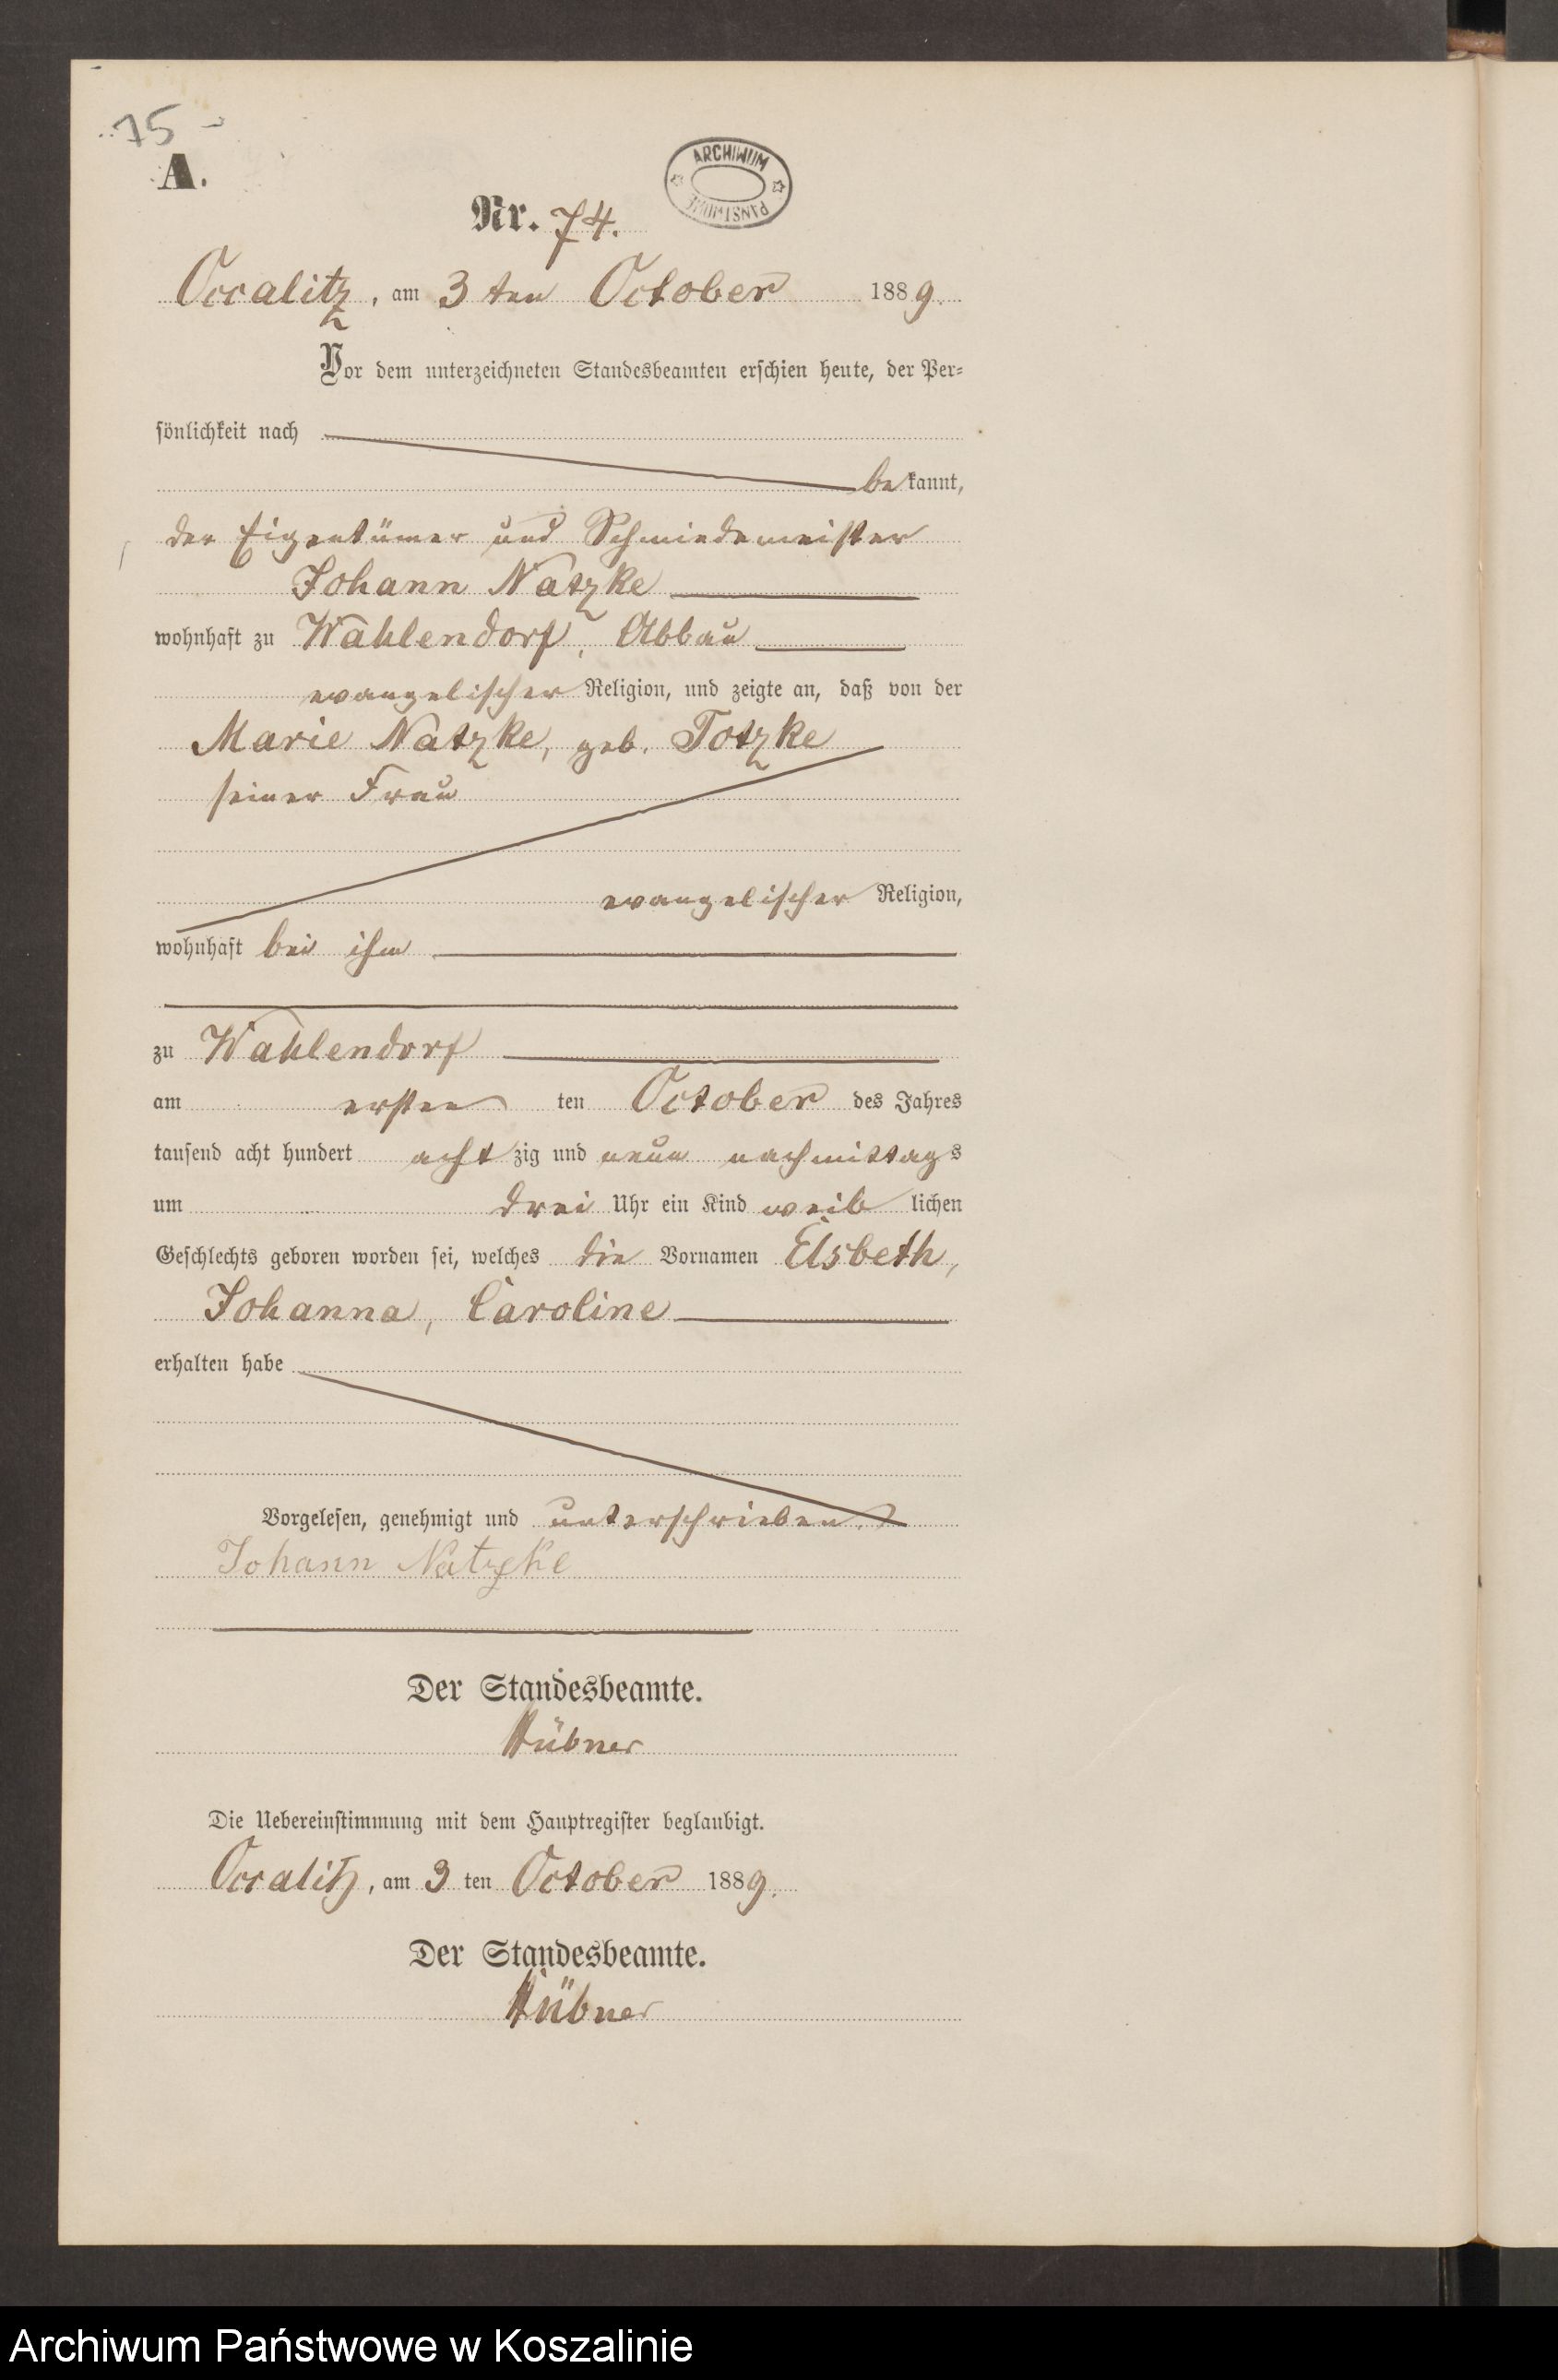 75-
A.
ARCHIWUM
PAŃSTWOWE
Nr. 74.
Occalitz, am 3 ten October 1889.
Vor dem unterzeichneten Standesbeamten erschien heute, der Per-
sönlichkeit nach
bekannt,
der Eigentümer und Schmiedemeister
Johann Natzke
wohnhaft zu Wahlendorf, Abbau
evangelischer Religion, und zeigte an, daß von der
Marie Natzke, geb. Totzke
seiner Frau
evangelischer Religion,
wohnhaft bei ihm
zu Wahlendorf
am ersten ten October des Jahres
tausend acht hundert achtzig und neun nachmittags
um drei Uhr ein Kind weiblichen
Geschlechts geboren worden sei, welches die Vornamen Elsbeth,
Johanna, Caroline
erhalten habe
Vorgelesen, genehmigt und unterschrieben.
Johann Natzke
Der Standesbeamte.
Hübner
Die Uebereinstimmung mit dem Hauptregister beglaubigt.
Occalitz, am 3 ten October 1889.
Der Standesbeamte.
Hübner
Archiwum Państwowe w Koszalinie